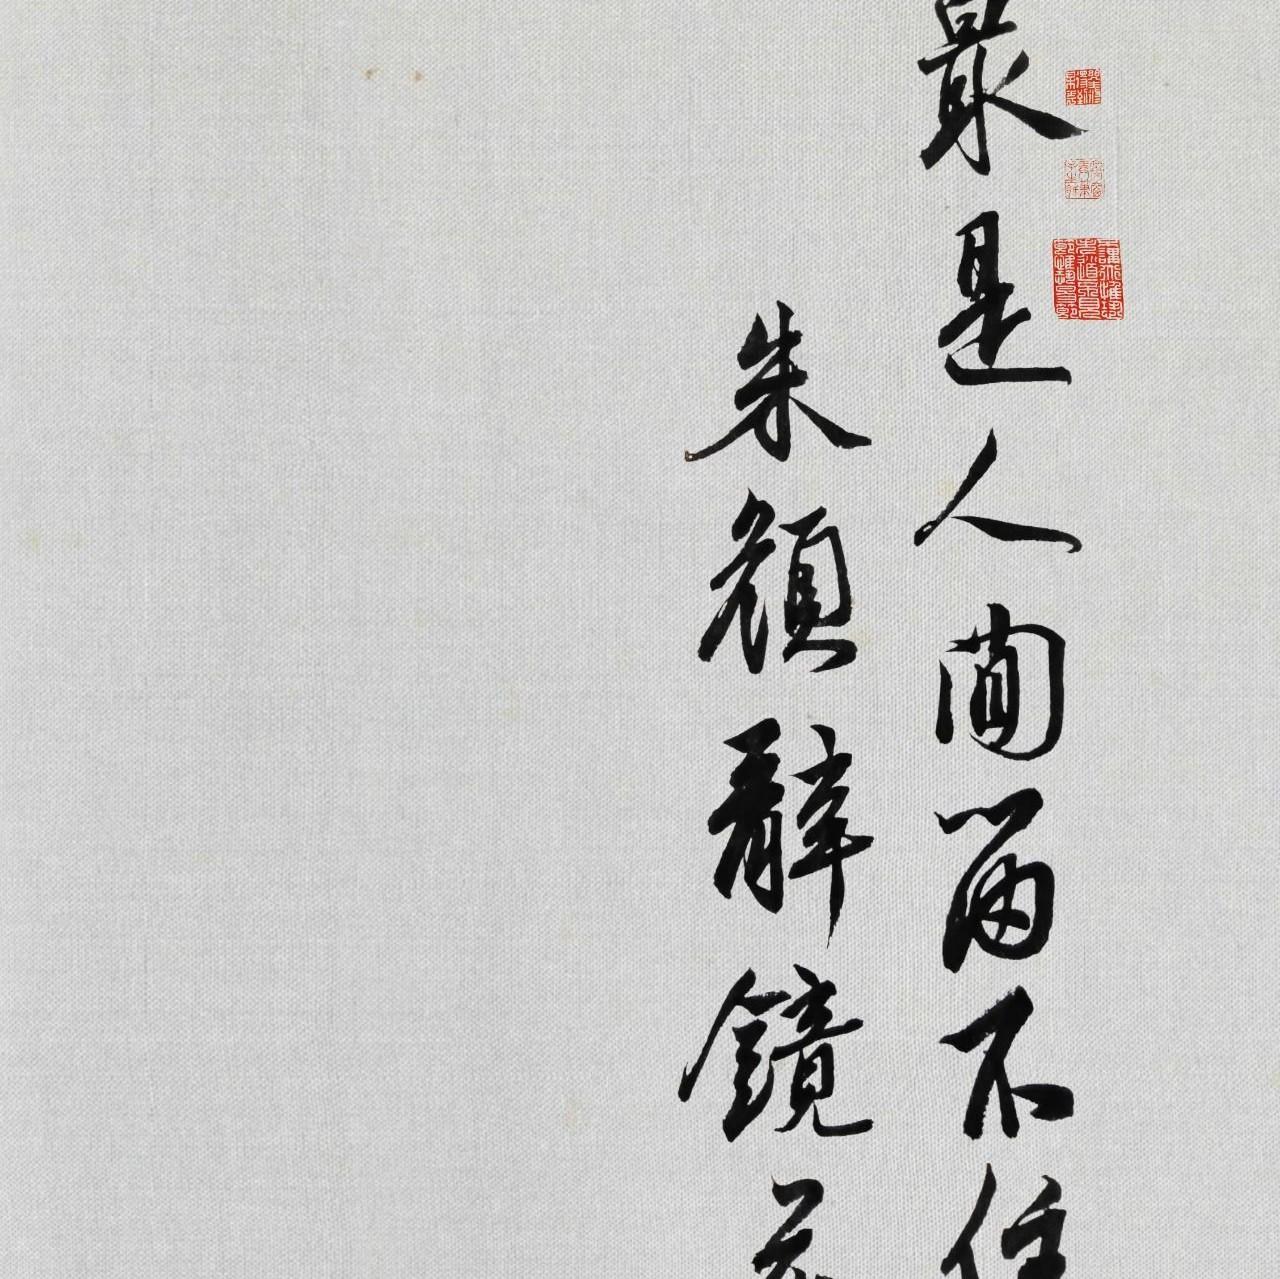 最是人間留不住
朱顏辭鏡花